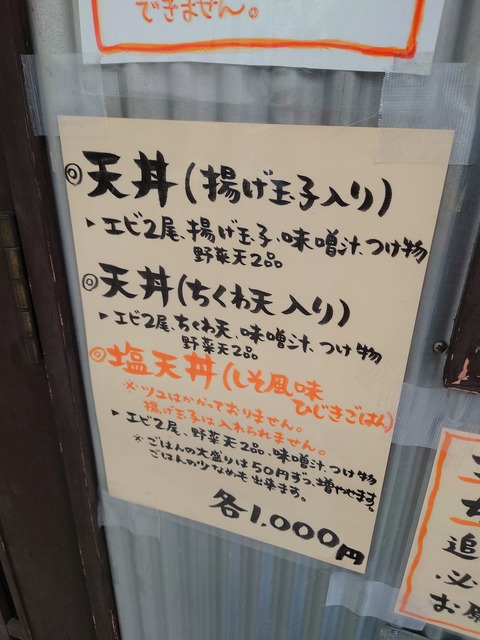 できません。
◎天丼(揚げ玉子入り)
▶エビ2尾、揚げ玉子、味噌汁、つけ物
野菜天2品
◎天丼(ちくわ天入り)
▶エビ2尾、ちくわ天、味噌汁、つけ物
野菜天2品
◎塩天丼(しそ風味
ひじきごはん)
※ツユはかかっておりません。
揚げ玉子は入れられません。
▶エビ2尾、野菜天2品、味噌汁、つけ物
※ごはんの大盛りは50円ずつ増やせます。
ごはんの少なめも出来ます。
各1.000円
追
必
お願